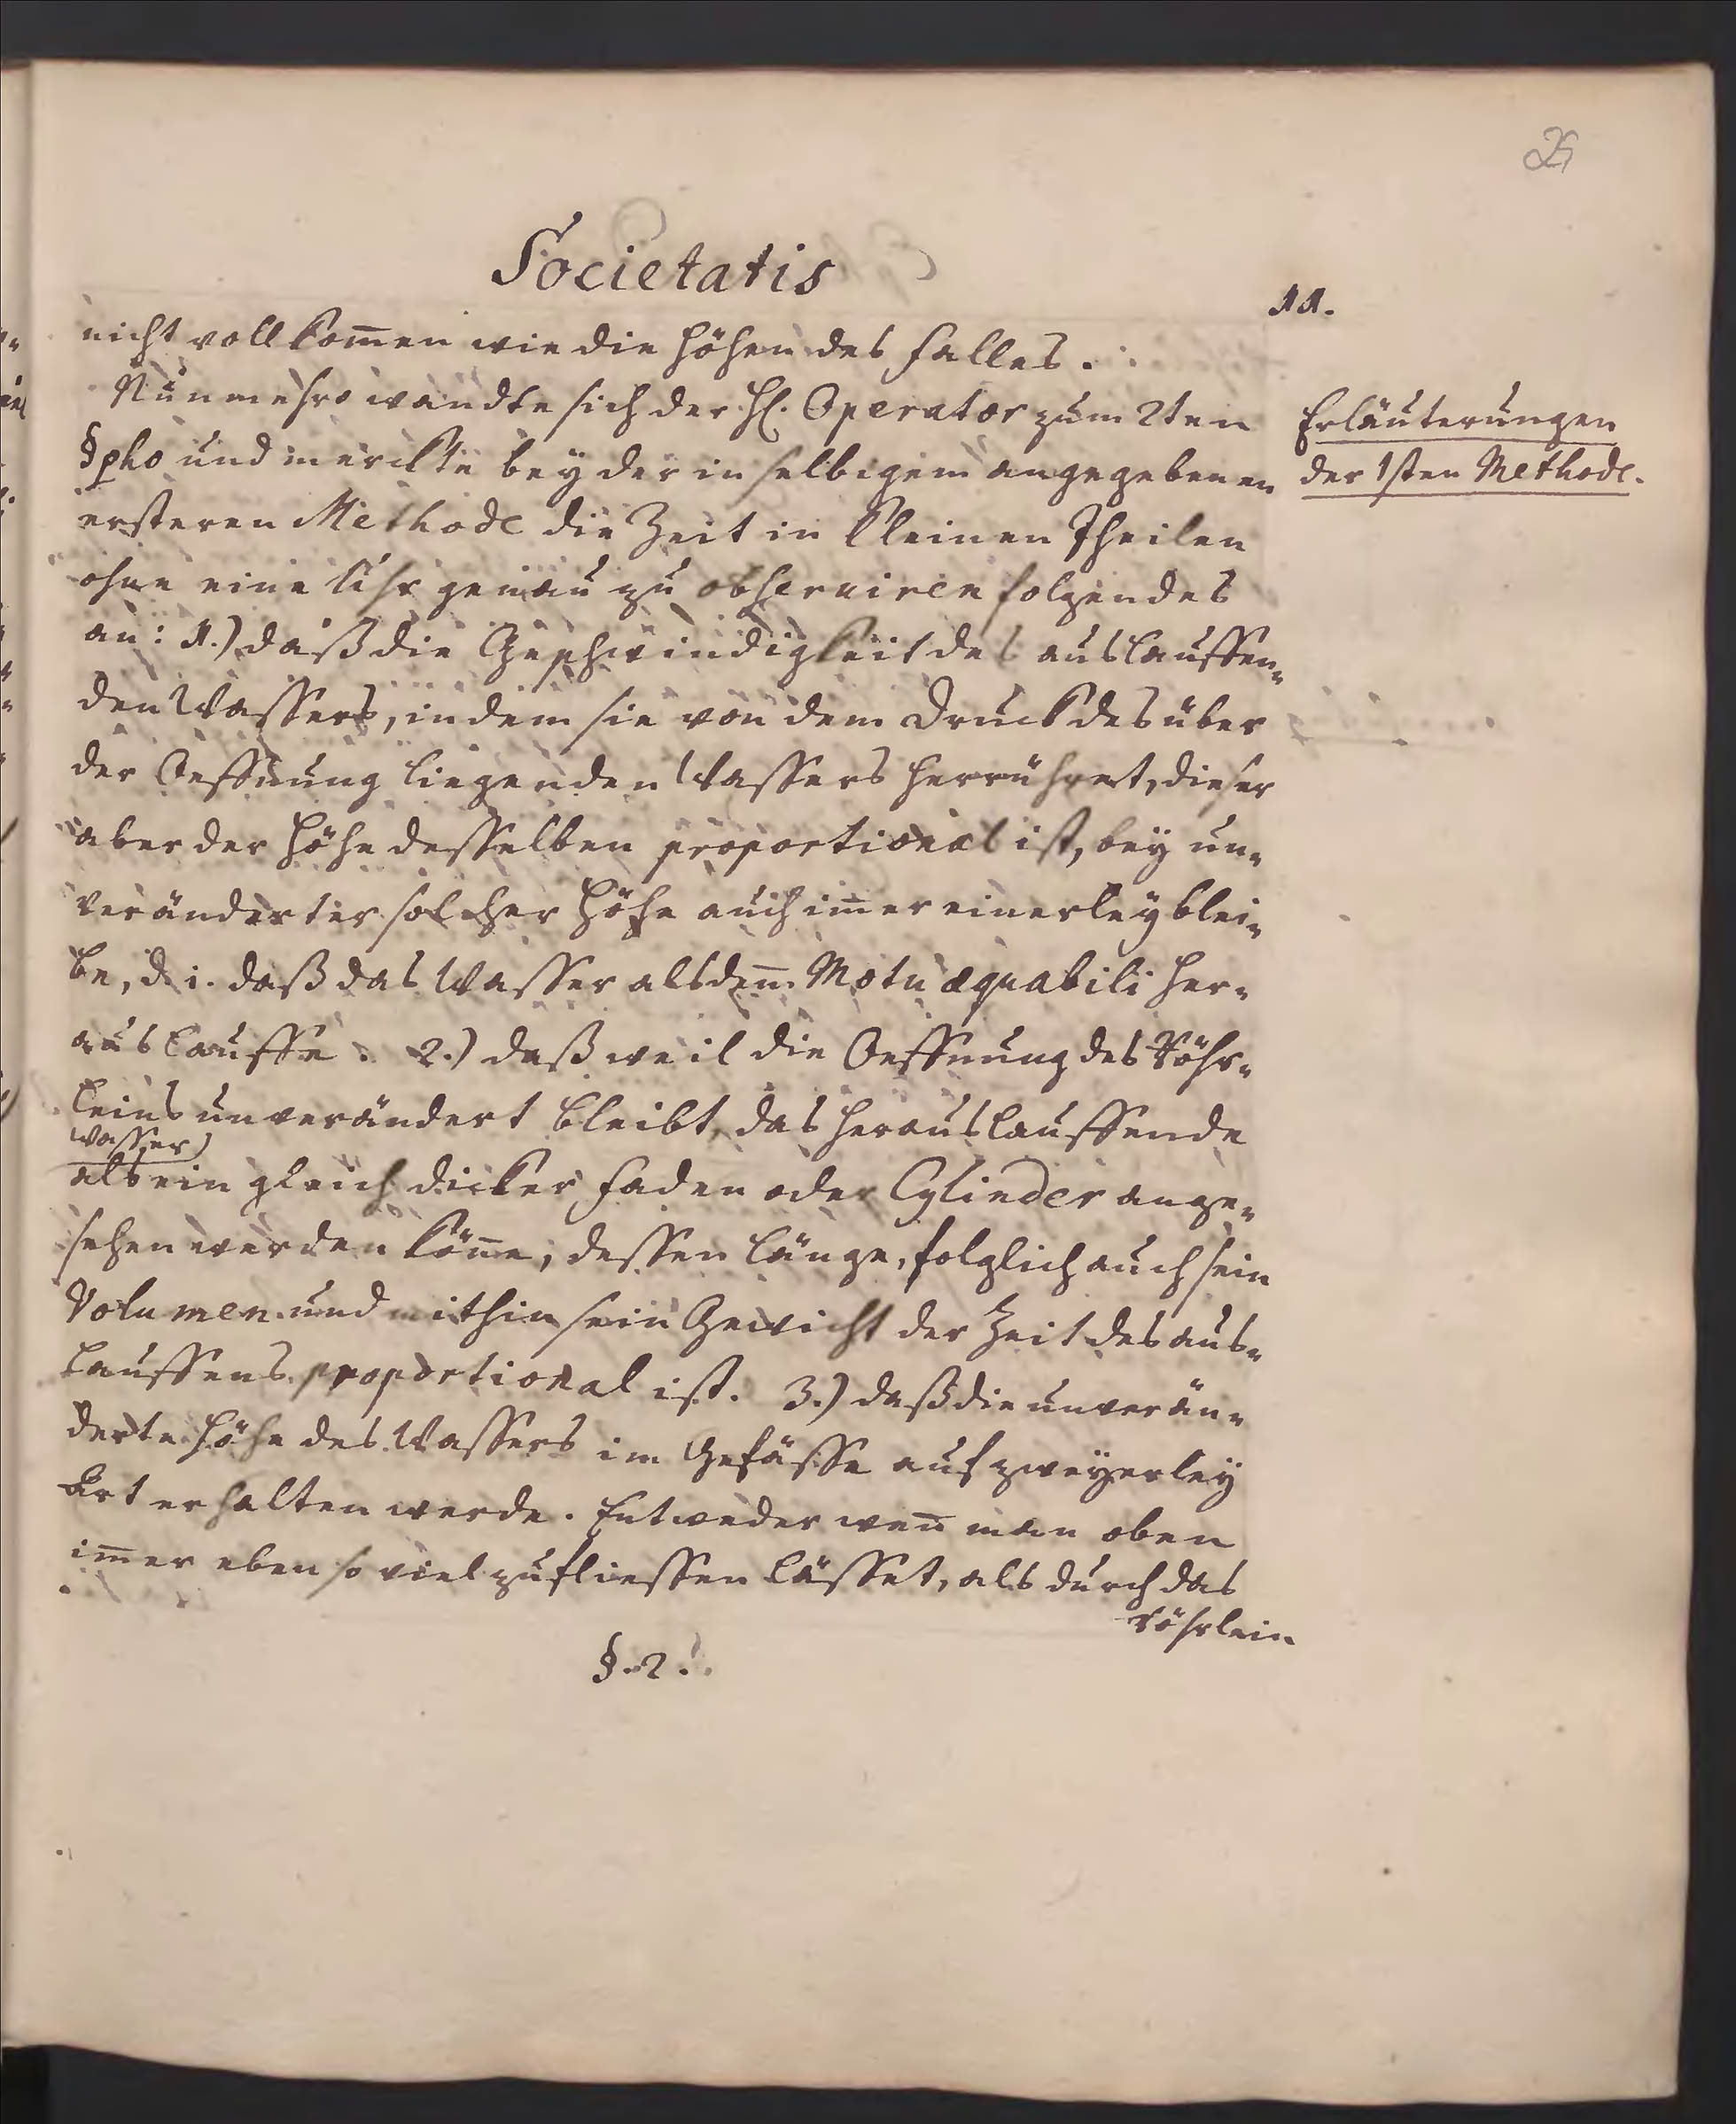 Societatis
11.
nicht vollkom̄en wie die Höhen des Falles.
Nunmehro wandte sich der H. Operator zum 2ten
§pho und merckte bey der in selbigem angegebenen
ersteren Methode die Zeit in kleinen Theilen
ohne eine Uhr genau zu observiren folgendes
an: 1.) daß die Geschwindigkeit des auslauffen-
den Wassers, indem sie von dem Druck des über
der Oeffnung liegenden Wassers herrühret, dieser
aber der Höhe desselben proportional ist, bey un-
veränderter solcher Höhe auch im̄er einerley blei-
be, d. i. daß das Wasser alsden̄ Motu æquabili her-
auslauffe. 2.) daß weil die Oeffnung des Röhr-
leins unverändert bleibt, das herauslauffende
Wasser
als ein gleich dicker Faden oder Cylinder ange-
sehen werden kön̄e, dessen Länge, folglich auch sein
Volumen und mithin sein Gewicht der Zeit des aus-
lauffens proportional ist. 3.) daß die unverän-
derte Höhe des Wassers im Gefässe auf zweyerley
Art erhalten werde. Entweder wen̄ man oben
im̄er eben so viel zufliessen lässet, als durch das
Röhrlein
§. 2.
Erläuterungen
der 1sten Methode.